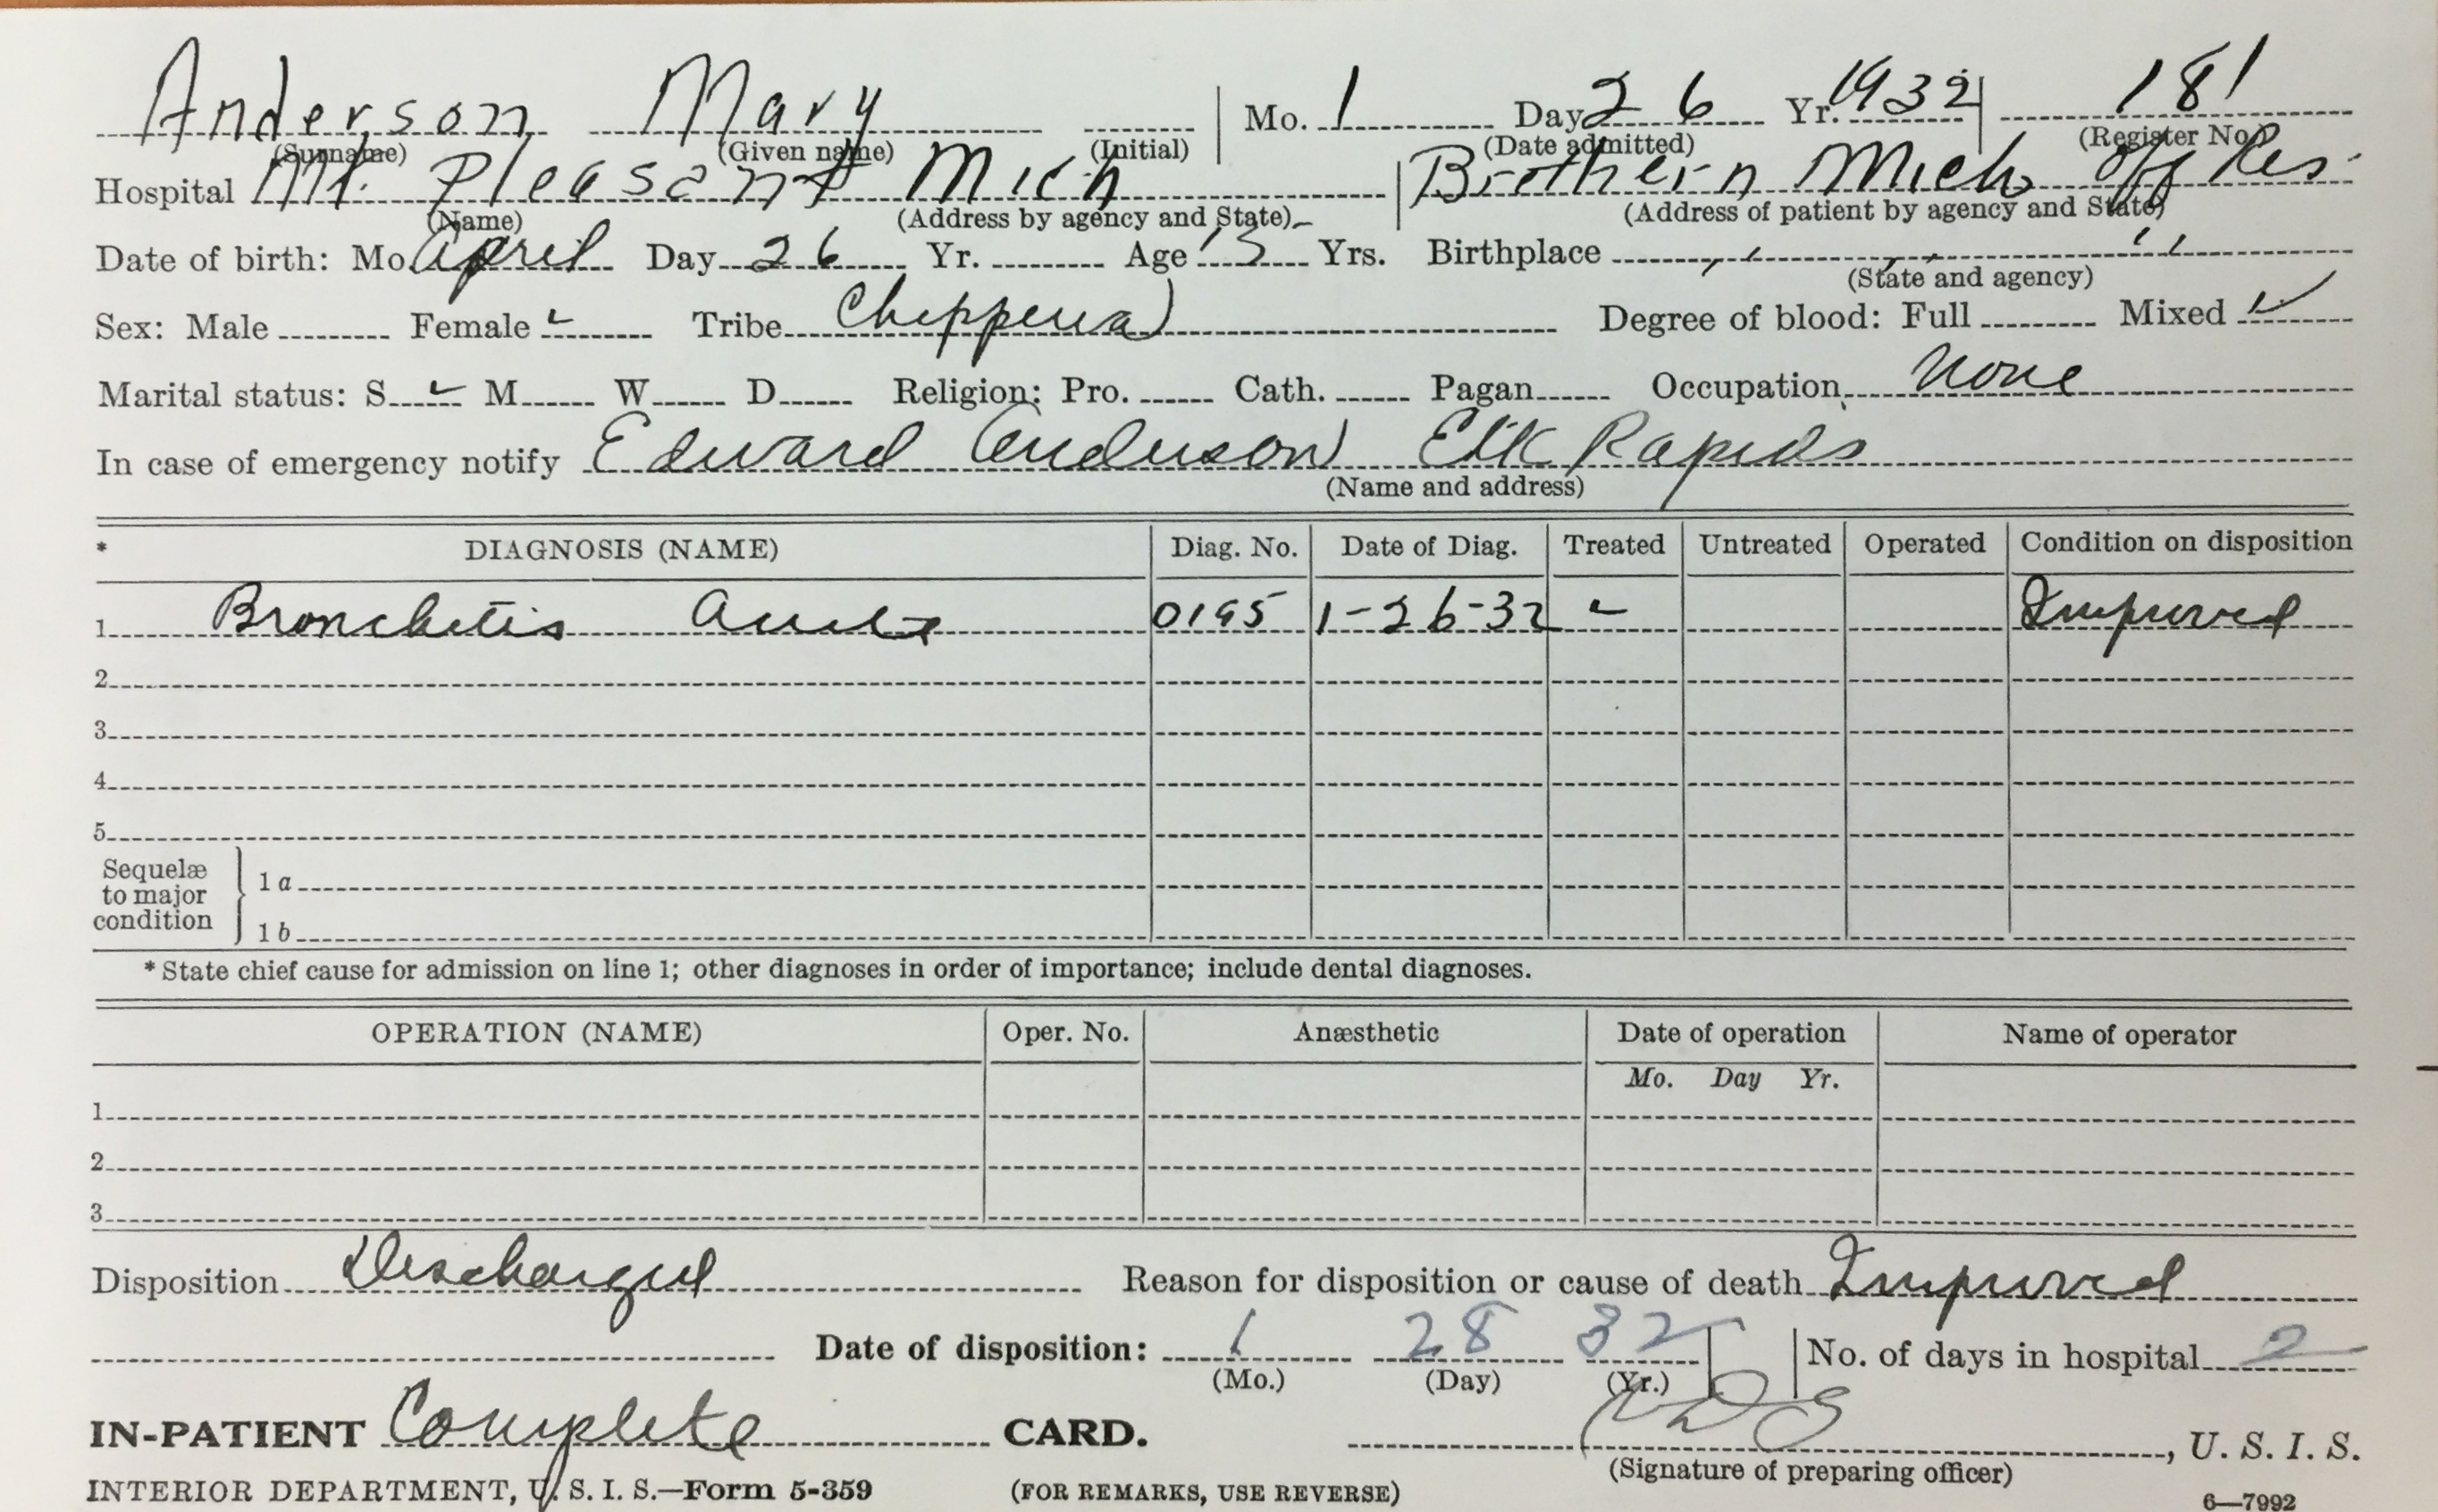 Anderson Mary Mo. 1 Day 26 Yr. 1932 181
(Surname) (Given name) (Initial) (Date admitted) (Register No.)
Hospital Mt. Pleasant Mich Brethern Mich off Res.
(Name) (Address by agency and State) (Address of patient by agency and State)
Date of birth: Mo. April Day 26 Yr. Age 13 Yrs. Birthplace " " "
(State and agency)
Sex: Male Female ✓ Tribe Chippewa Degree of blood: Full Mixed ✓
Marital status: S ✓ M W D Religion: Pro. Cath. Pagan Occupation None
In case of emergency notify Edward Anderson Elk Rapids
(Name and address)
* DIAGNOSIS (NAME) Diag. No. Date of Diag. Treated Untreated Operated Condition on disposition
1 Bronchitis Acute 0195 1-26-32 ✓ Improved
2
3
4
5
Sequelæ to major condition
1 a
1 b
* State chief cause for admission on line 1; other diagnoses in order of importance; include dental diagnoses.
OPERATION (NAME) Oper. No. Anæsthetic Date of operation Name of operator
Mo. Day Yr.
1
2
3
Disposition Discharged Reason for disposition or cause of death Improved
Date of disposition: 1 28 32 No. of days in hospital 2
(Mo.) (Day) (Yr.)
IN-PATIENT Complete CARD. , U. S. I. S.
(Signature of preparing officer)
INTERIOR DEPARTMENT, U. S. I. S.—Form 5-359 (FOR REMARKS, USE REVERSE) 6—7992